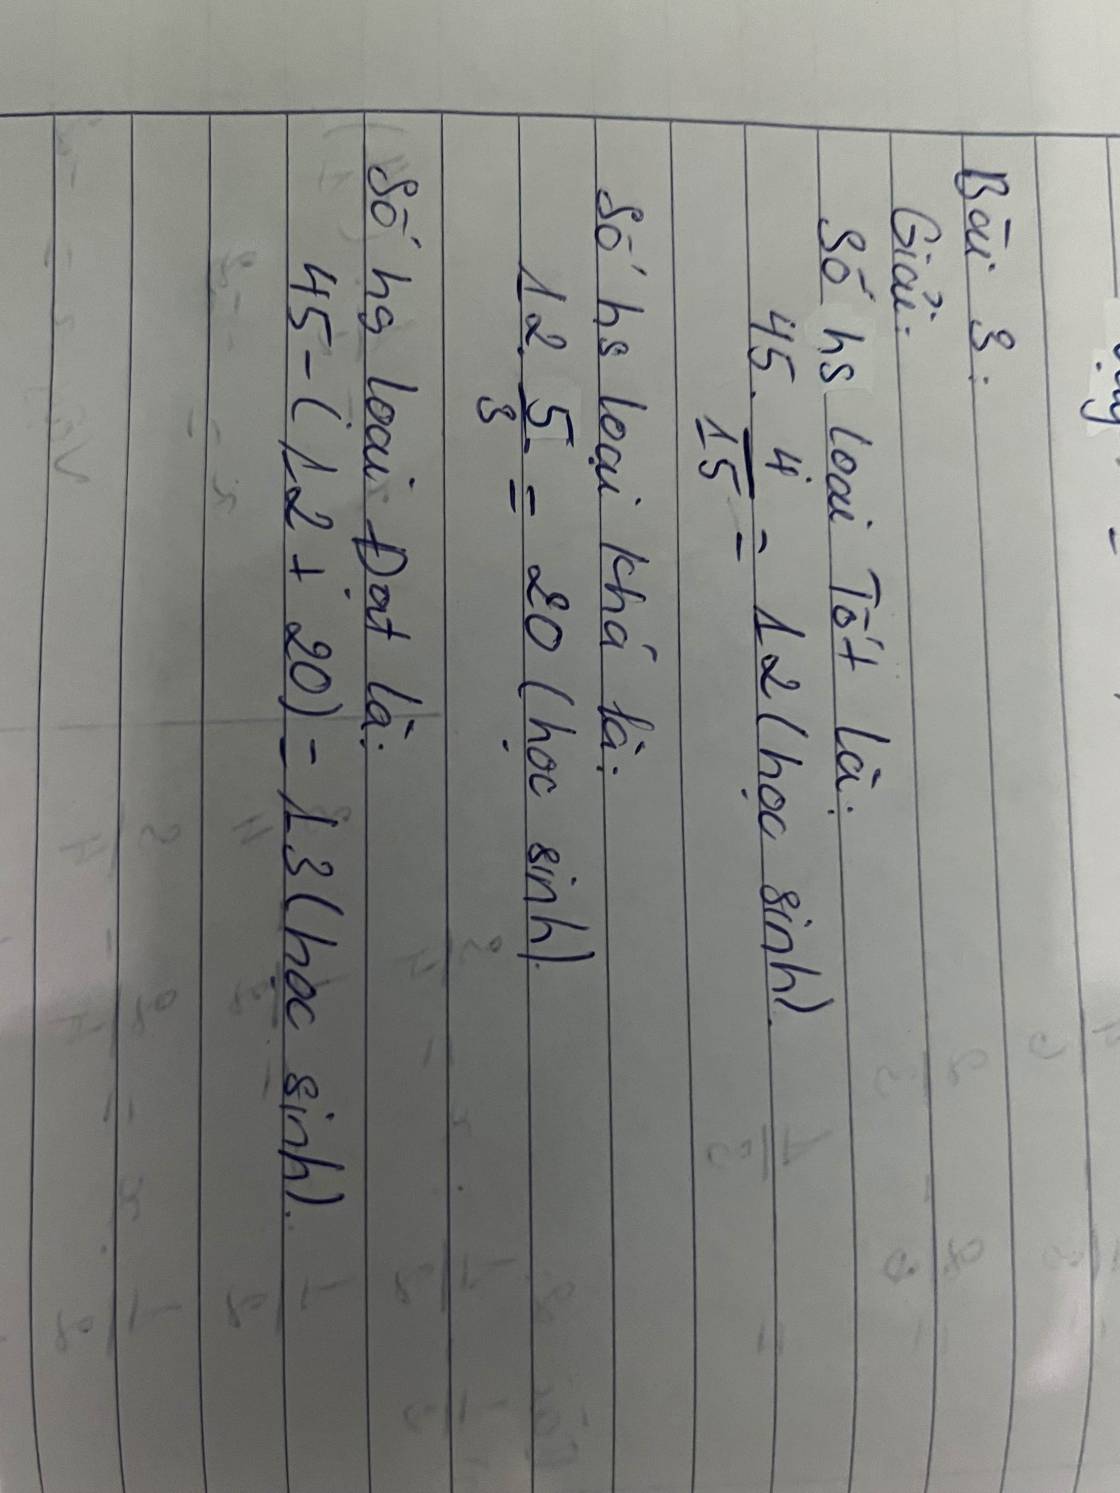 Bài 3:
Giải:
Số hs loại Tốt là:
45 . 4/15 = 12 (học sinh).
Số hs loại khá là:
12 . 5/3 = 20 (học sinh).
Số hs loại Đạt là:
45 - (12 + 20) = 13 (học sinh).